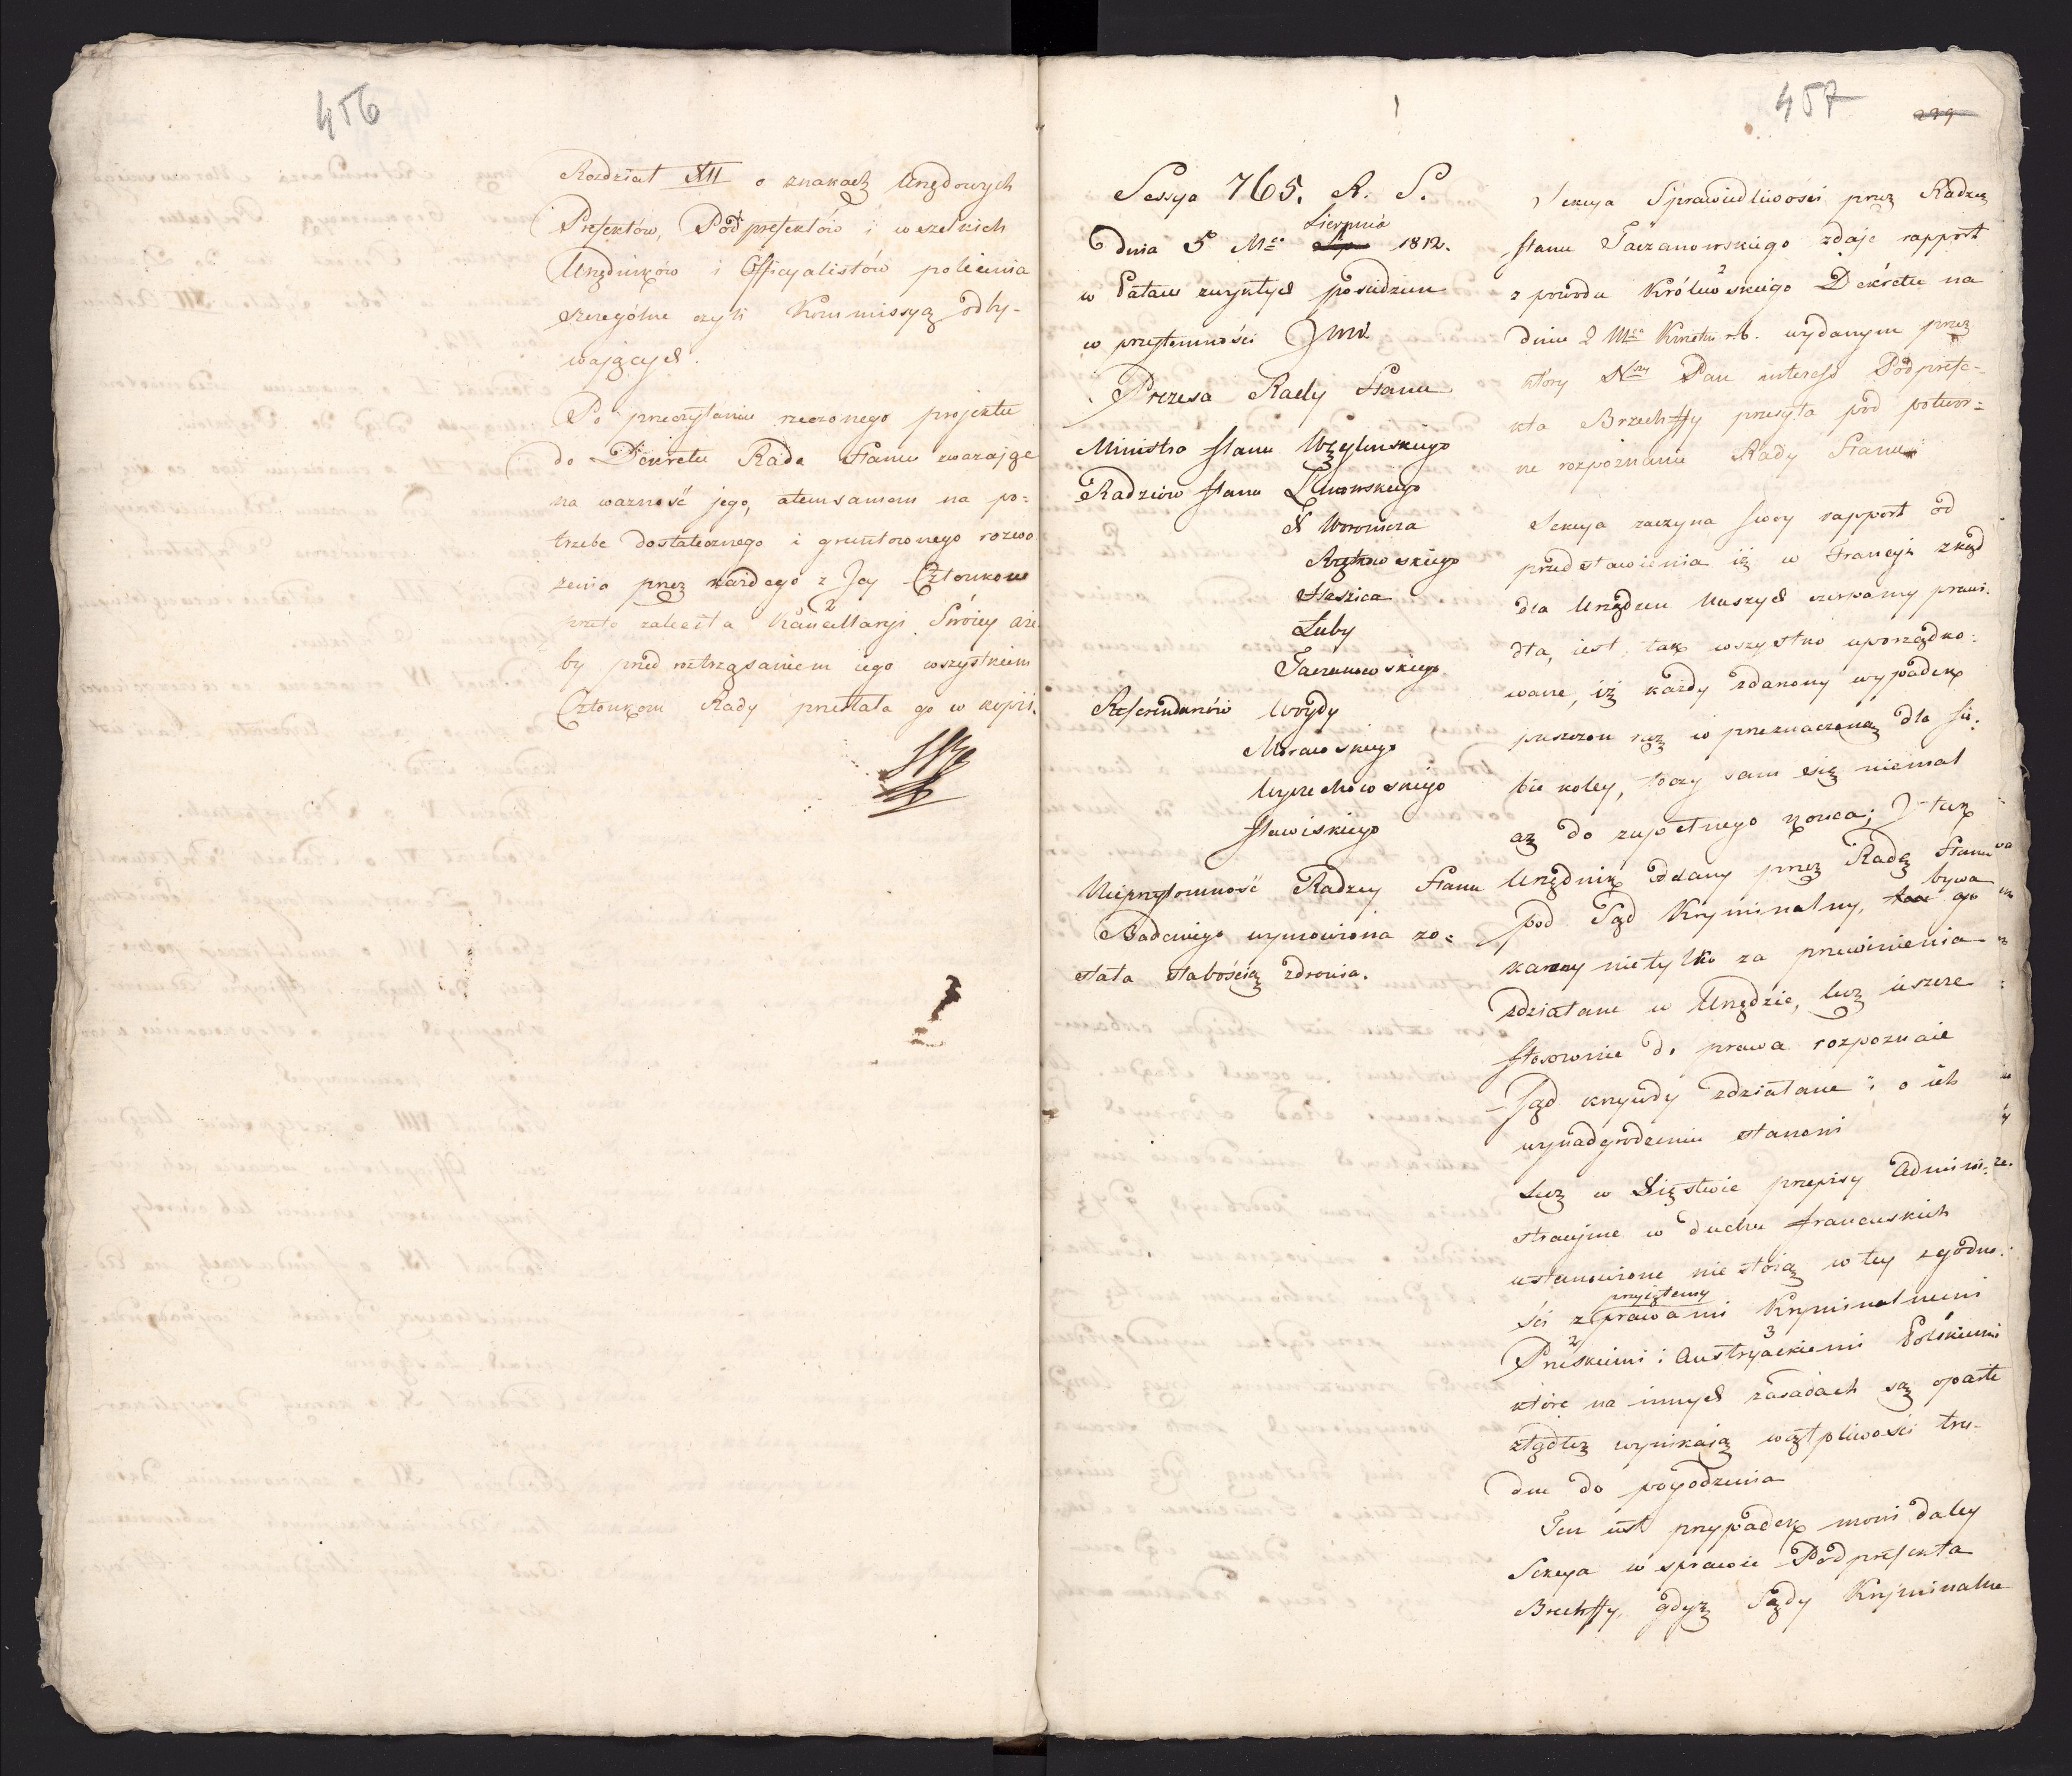 456
Rozdział XII o znakach Urzędowych
Prefektów, Podprefektów i wszelkich
Urzędników i Officyalistów polecenia
szczególne czyli Kommissyą odby-
waiących.
Po przeczytaniu rzeczonego projektu
do Dekretu Rada Stanu zważaiąc
na ważność jego, a tem samem na po=
trzebę dostatecznego i gruntownego rozwa
żenia przez każdego z Jey Członków
zaleciła Kancellaryi Swóiey aże
by przed roztrząsaniem iego wszystkiem
Członkom Rady przesłała go w kopii.
457
239
Sessya 765. R. S.
Sierpnia
Dnia 5 Mca 1812.
w Pałacu zwykłych posiedzeń
w przytomności JW
Prezesa Rady Stanu
Ministra Stanu Węglinskiego
Radzców Stanu Linowskiego
X Woronicza
Staszica
Łuby
Taczanowskiego
Referendarzów Woydy
Morawskiego
Wyczechowskiego
Nieprzytomność Radzcy Stanu
Badeniego wymowiona zo=
stała słabością zdrowia.
Sekcya Sprawiedliwości przez Radzcę
Stanu Taczanowskiego zdaje rapport
z powodu Królewskiego Dekretu na
dniu 2 Mca Kwietnia r. b. wydanym przez
który Nny Pan interess Podprefe-
kta Brzechffy przesyła pod powtor=
ne rozpoznanie Rady Stanu
Sekcya zaczyna swoy rapport od
przedstawienia iż w Francyi zkąd
dla Urzędów Naszych czerpamy prawi-
dła, iest tak wszystko uporządko=
wane, iż każdy zdarzony wypadek
puszczon raz w przeznaczoną dla sie=
bie koley, toczy sam się niemal
aż do zupełnego końca; I tak
Urzędnik oddany przez Radę Stanu
bywa
pod Sąd Kryminalny, go
karzy nietylko za przewinienia
zdziałane w Urzędzie, lecz ieszcze
stosownie do prawa rozpoznaie
Sąd krzywdy zdziałane i o ich
wynadgrodzeniu stanowi
Lecz w Xięstwie przepisy Admini=
stracyjne w duchu francuskich
ustanowione nie stoią w tey zgodno=
przyiętemy
ści z prawami Kryminalnemi
2 3
Pruskiemi i Austryackiemi Polskiemi
które na innych zasadach są oparte
ztądteż wynikaią wątpliwości tru-
dne do pogodzenia
Ten iest przypadek mowi daley
Sekcya w sprawie Podprefekta
Brzechffy, gdyż Sądy Kryminalne